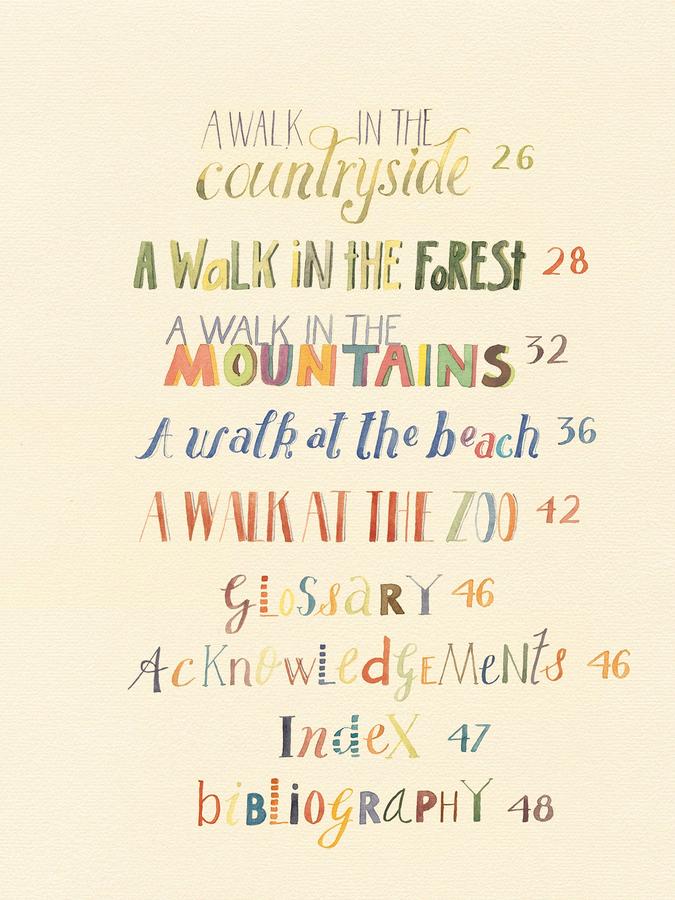 A WALK IN THE
countryside 26
A WaLK iN tHE FoREST 28
A WALK IN THE
MOUNTAINS 32
A walk at the beach 36
A WALK AT THE ZOO 42
GLoSSaRY 46
AcKnowledgEMeNts 46
IndeX 47
biBLiogRaPHY 48